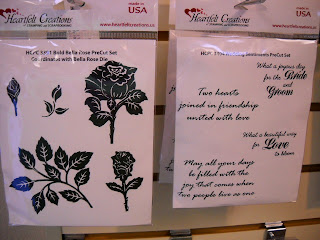 Heartfelt Creations
made in
USA
www.heartfeltcreations.us
Bold Bella Rose PreCut Set
Coordinates with Bella Rose Die
Heartfelt Creations
made in
USA
www.heartfeltcreations.us
Sentiments PreCut Set
What a joyous day
for the Bride
and
Groom
Two hearts
joined in friendship
united with love
What a beautiful way
for Love
to bloom
May all your days
be filled with the
joy that comes when
two people live as one